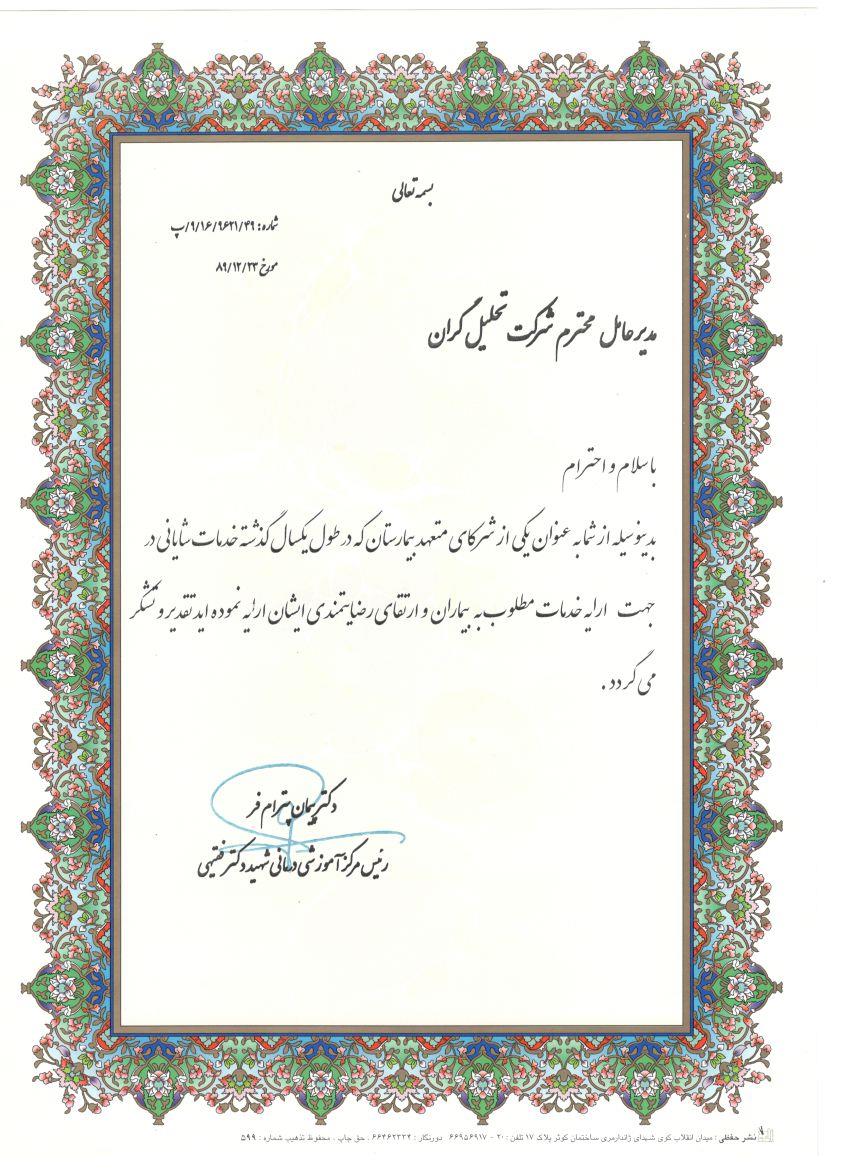 بسمه تعالی
شماره: ۹/۱۶/۹۶۲۱/۴۹/پ
مورخ ۸۹/۱۲/۲۳
مدیرعامل محترم شرکت تحلیل گران
باسلام و احترام
بدینوسیله از شما به عنوان یکی از شرکای متعهد بیمارستان که در طول یکسال گذشته خدمات شایانی در
جهت ارایه خدمات مطلوب به بیماران و ارتقای رضایتمندی ایشان ارایه نموده اید تقدیر و تشکر
می گردد .
دکتر پیمان پترام فر
رئیس مرکز آموزشی درمانی شهید دکتر فقیهی
نشر حفظی : میدان انقلاب کوی شهدای ژاندارمری ساختمان کوثر پلاک ۱۷ تلفن : ۲۰ - ۶۶۹۵۶۹۱۷ دورنگار : ۶۶۴۶۲۳۳۴ ، حق چاپ ، محفوظ تذهیب شماره : ۵۹۹